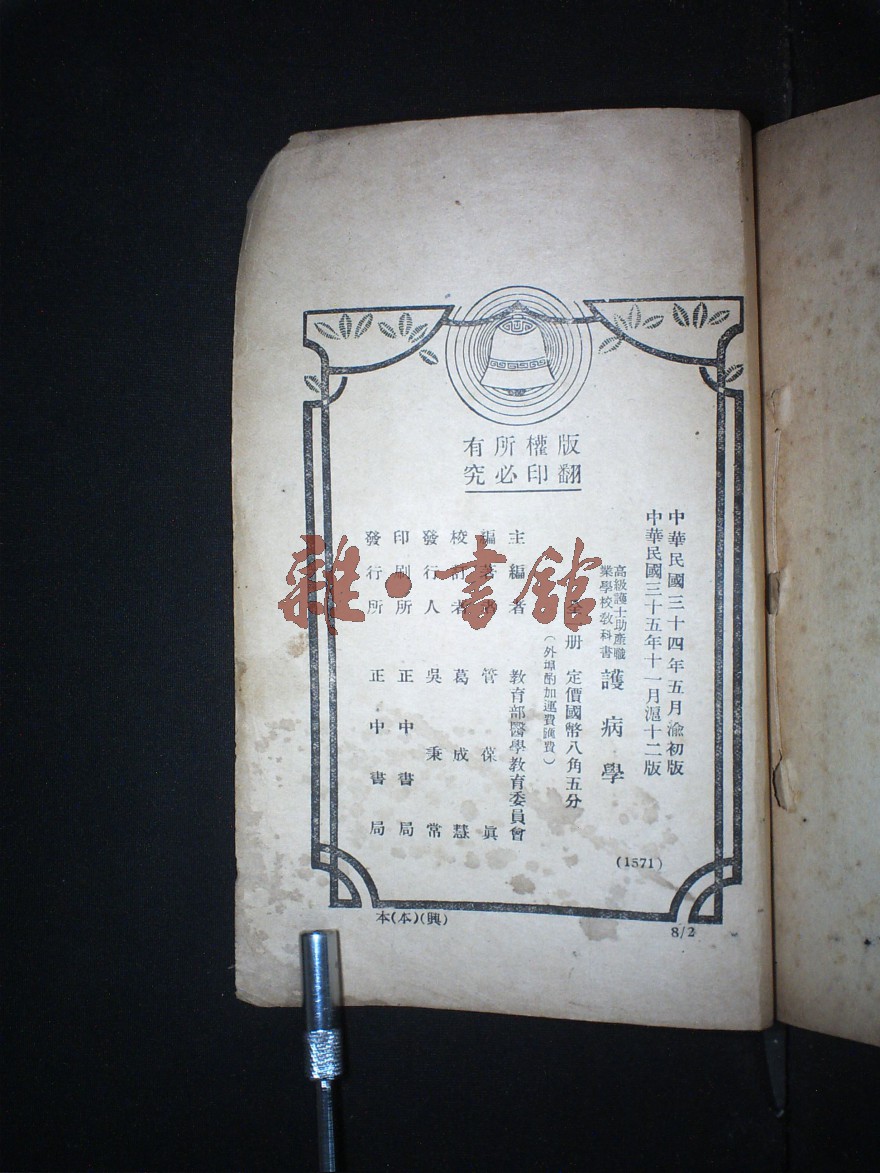 版權所有
翻印必究
中華民國三十四年五月渝初版
中華民國三十五年十一月滬十二版
高級護士助產職
業學校教科書
護病學
全一册 定價國幣八角五分
(外埠酌加運費匯費)
主編者 教育部醫學教育委員會
編著者 管葆眞
校訂者 葛成慧
發行人 吳秉常
印刷所 正中書局
發行所 正中書局
(1571)
本(本)(興)
8/2
雜·書館